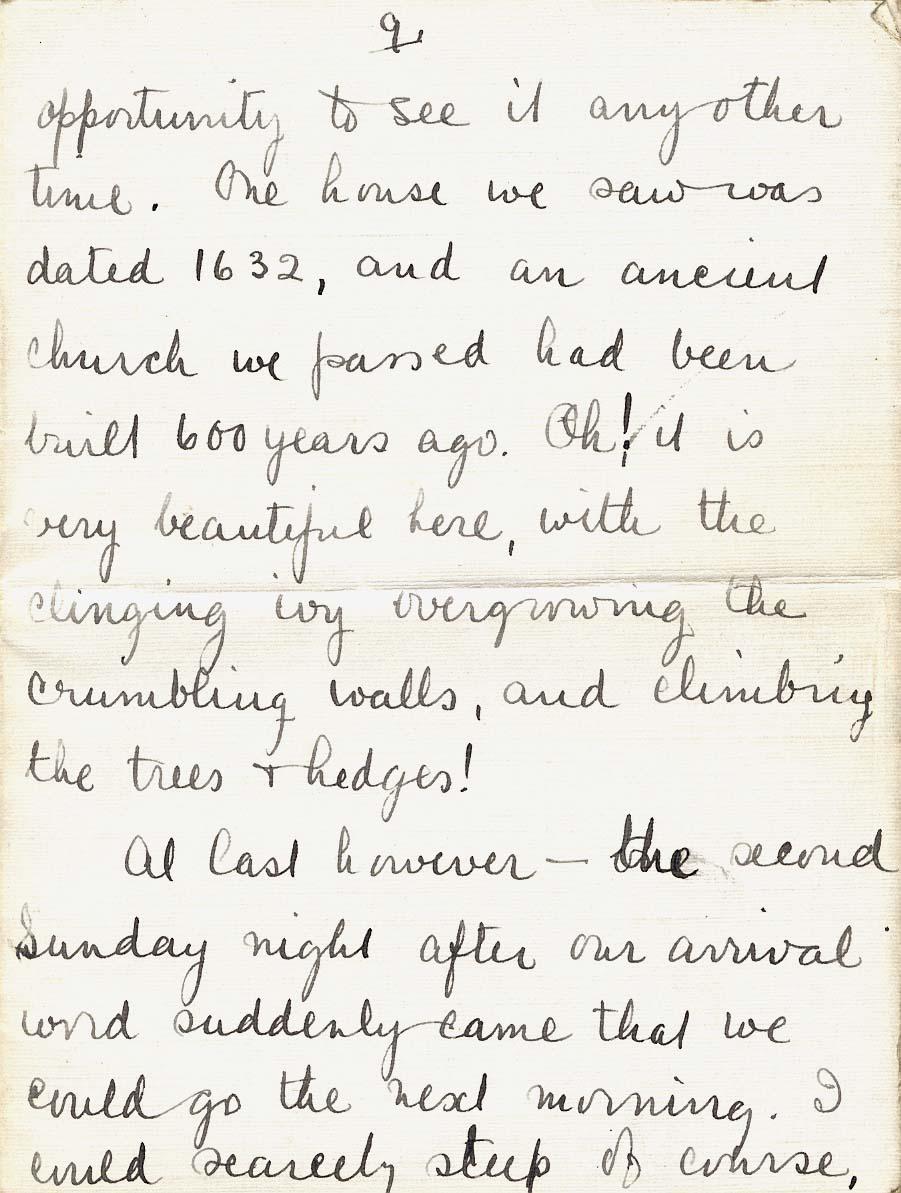 9
opportunity to see it any other
time. One house we saw was
dated 1632, and an ancient
church we passed had been
built 600 years ago. Oh! it is
very beautiful here, with the
clinging ivy overgrowing the
crumbling walls, and climbing
the trees + hedges!
At last however — the second
Sunday night after our arrival
word suddenly came that we
could go the next morning. I
could scarcely sleep of course,